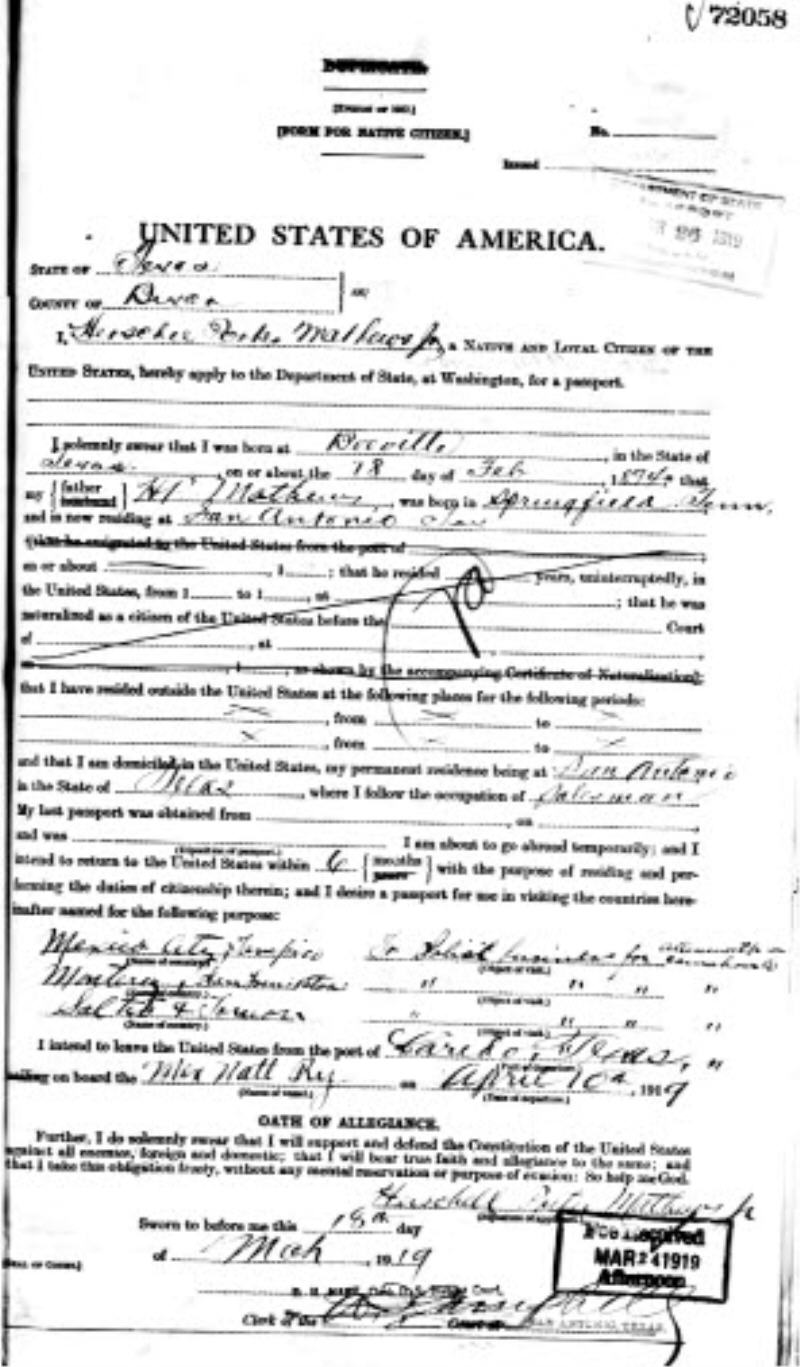 72058
DUPLICATE.
[FORM FOR NATIVE CITIZEN.]
No.
Issued
DEPARTMENT OF STATE
1919
UNITED STATES OF AMERICA.
STATE OF Texas
COUNTY OF Bexar
I, Herschel Mathews Jr, a NATIVE AND LOYAL CITIZEN OF THE
UNITED STATES, hereby apply to the Department of State, at Washington, for a passport.
I solemnly swear that I was born at Beeville, in the State of
Texas, on or about the 18 day of Feb, 1874, that
my {father husband} H P Mathews, was born in Springfield Tenn,
and is now residing at San Antonio Tex
(that he emigrated to the United States from the port of
on or about , 1 ; that he resided years, uninterruptedly, in
the United States, from 1 to 1 , at ; that he was
naturalized as a citizen of the United States before the Court
of , at
, 1 , as shown by the accompanying Certificate of Naturalization];
that I have resided outside the United States at the following places for the following periods:
, from to
, from to
and that I am domiciled in the United States, my permanent residence being at San Antonio
in the State of Texas, where I follow the occupation of Salesman
My last passport was obtained from , on ,
and was I am about to go abroad temporarily; and I
(Disposition of passport.)
intend to return to the United States within 6 {months years} with the purpose of residing and per-
forming the duties of citizenship therein; and I desire a passport for use in visiting the countries here-
inafter named for the following purpose:
Mexico City, Tampico To Solicit business for
(Name of country.) (Object of visit.)
Monterey, " " " "
(Name of country.) (Object of visit.)
Saltillo & Torreon " " " "
(Name of country.) (Object of visit.)
I intend to leave the United States from the port of Laredo, Texas, "
sailing on board the Mex Natl Ry on April 10th, 1919
(Name of vessel.) (Date of departure.)
OATH OF ALLEGIANCE.
Further, I do solemnly swear that I will support and defend the Constitution of the United States
against all enemies, foreign and domestic; that I will bear true faith and allegiance to the same; and
that I take this obligation freely, without any mental reservation or purpose of evasion: So help me God.
Herschell Mathews Jr
(Signature of applicant.)
Sworn to before me this 18th day
of Mch, 1919
[SEAL OF COURT.]
Received
MAR 24 1919
Afternoon
Clerk of the Court at SAN ANTONIO, TEXAS.